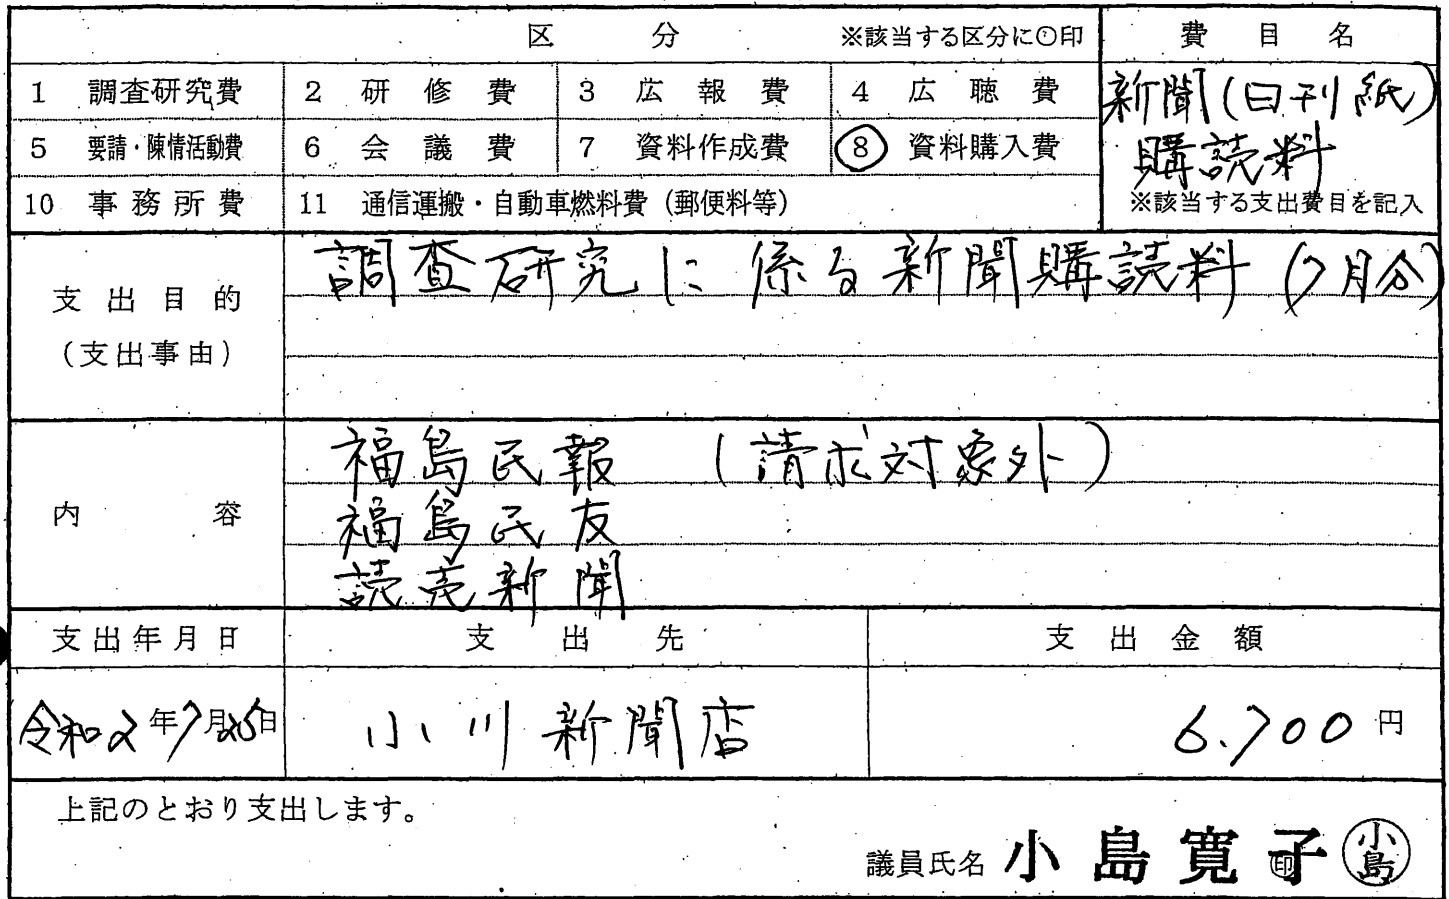 区 分 ※該当する区分に○印 費目名
1 調査研究費 2 研修費 3 広報費 4 広聴費 新聞(日刊紙)
5 要請・陳情活動費 6 会議費 7 資料作成費 8 資料購入費 購読料
10 事務所費 11 通信運搬・自動車燃料費(郵便料等) ※該当する支出費目を記入
支出目的 調査研究に係る新聞購読料(7月分)
(支出事由)
福島民報 (請求対象外)
内容 福島民友
読売新聞
支出年月日 支出先 支出金額
令和2年7月25日 小川新聞店 6.700円
上記のとおり支出します。
議員氏名 小島寛子 印 小島